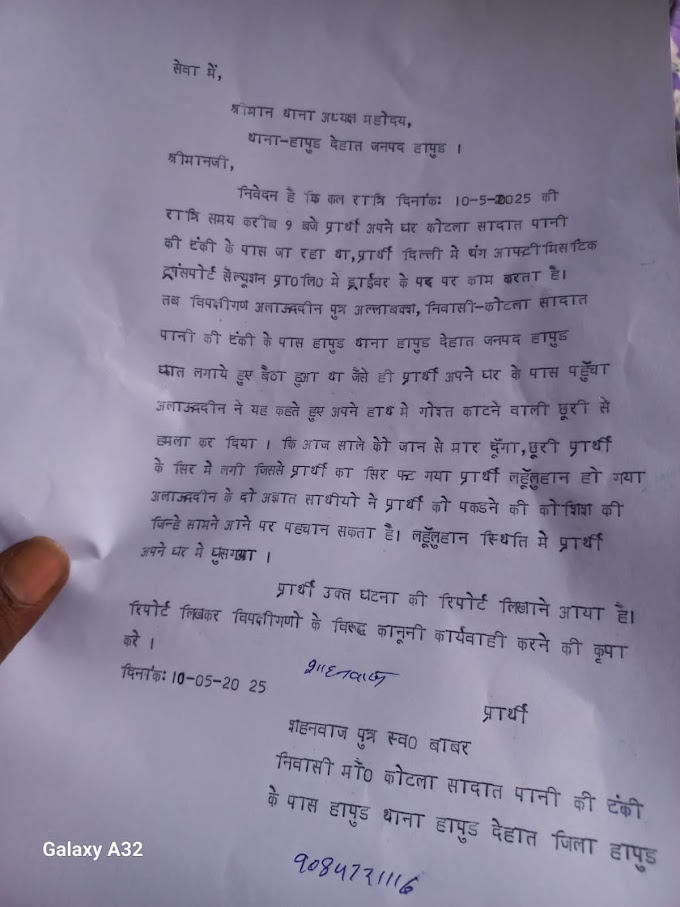 सेवा में,
श्रीमान थाना अध्यक्ष महोदय,
थाना-हापुड देहात जनपद हापुड ।
श्रीमानजी,
निवेदन है कि कल रात्रि दिनांक: 10-5-2025 की
रात्रि समय करीब 9 बजे प्रार्थी अपने घर कोटला सादात पानी
की टंकी के पास जा रहा था,प्रार्थी दिल्ली मे यंग आप्टीमिसटिक
ट्रांसपोर्ट सेल्यूशन प्रा0लि0 मे ड्राईवर के पद पर काम करता है।
तब विपक्षीगण अलाऊददीन पुत्र अल्लाबक्श, निवासी-कोटला सादात
पानी की टंकी के पास हापुड थाना हापुड देहात जनपद हापुड
घात लगाये हुए बैठा हुआ था जैसे ही प्रार्थी अपने घर के पास पहुँचा
अलाऊददीन ने यह कहते हुए अपने हाथ मे गोश्त काटने वाली छूरी से
हमला कर दिया । कि आज साले को जान से मार दूँगा,छूरी प्रार्थी
के सिर मे लगी जिससे प्रार्थी का सिर फट गया प्रार्थी लहूँलुहान हो गया
अलाऊददीन के दो अज्ञात साथीयो ने प्रार्थी को पकडने की कोशिश की
जिन्हे सामने आने पर पहचान सकता है। लहूँलुहान स्थिति मे प्रार्थी
अपने घर मे घुस गया ।
प्रार्थी उक्त घटना की रिपोर्ट लिखाने आया है।
रिपोर्ट लिखकर विपक्षीगणो के विरूद्ध कानूनी कार्यवाही करने की कृपा
करे ।
दिनांक: 10-05-20 25
शाहनवाज
प्रार्थी
शहनवाज पुत्र स्व0 बाबर
निवासी मौ0 कोटला सादात पानी की टंकी
के पास हापुड थाना हापुड देहात जिला हापुड
9084721116
Galaxy A32